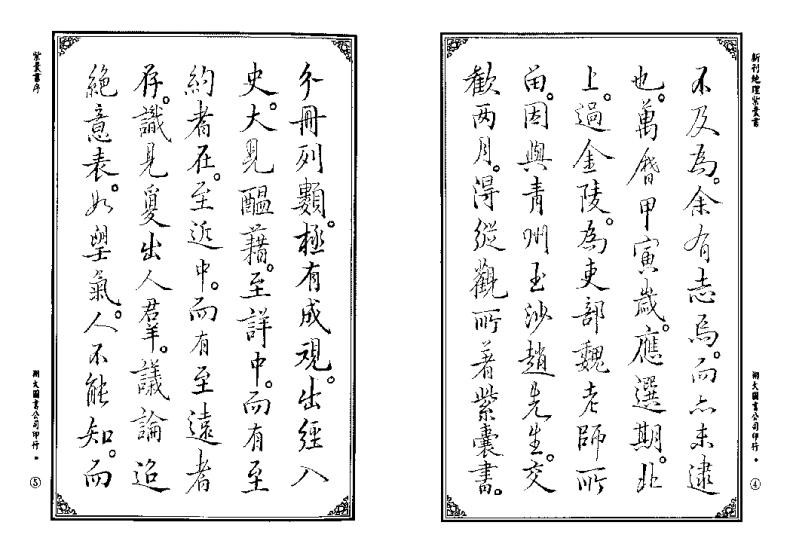 新刊地理紫囊書
不及為。余有志焉。而亦未逮
也。萬曆甲寅歲。應選期。北
上。過金陵。為吏部魏老師所
留。因與青州玉沙趙先生。交
歡兩月。得縱觀所著紫囊書。
翔大圖書公司印行。
④
紫囊書序
分冊列類。極有成規。出經入
史。大見醞藉。至詳中。而有至
約者在。至近中。而有至遠者
存。識見夐出人羣。議論迢
絕意表。如望氣。人不能知。而
翔大圖書公司印行。
⑤